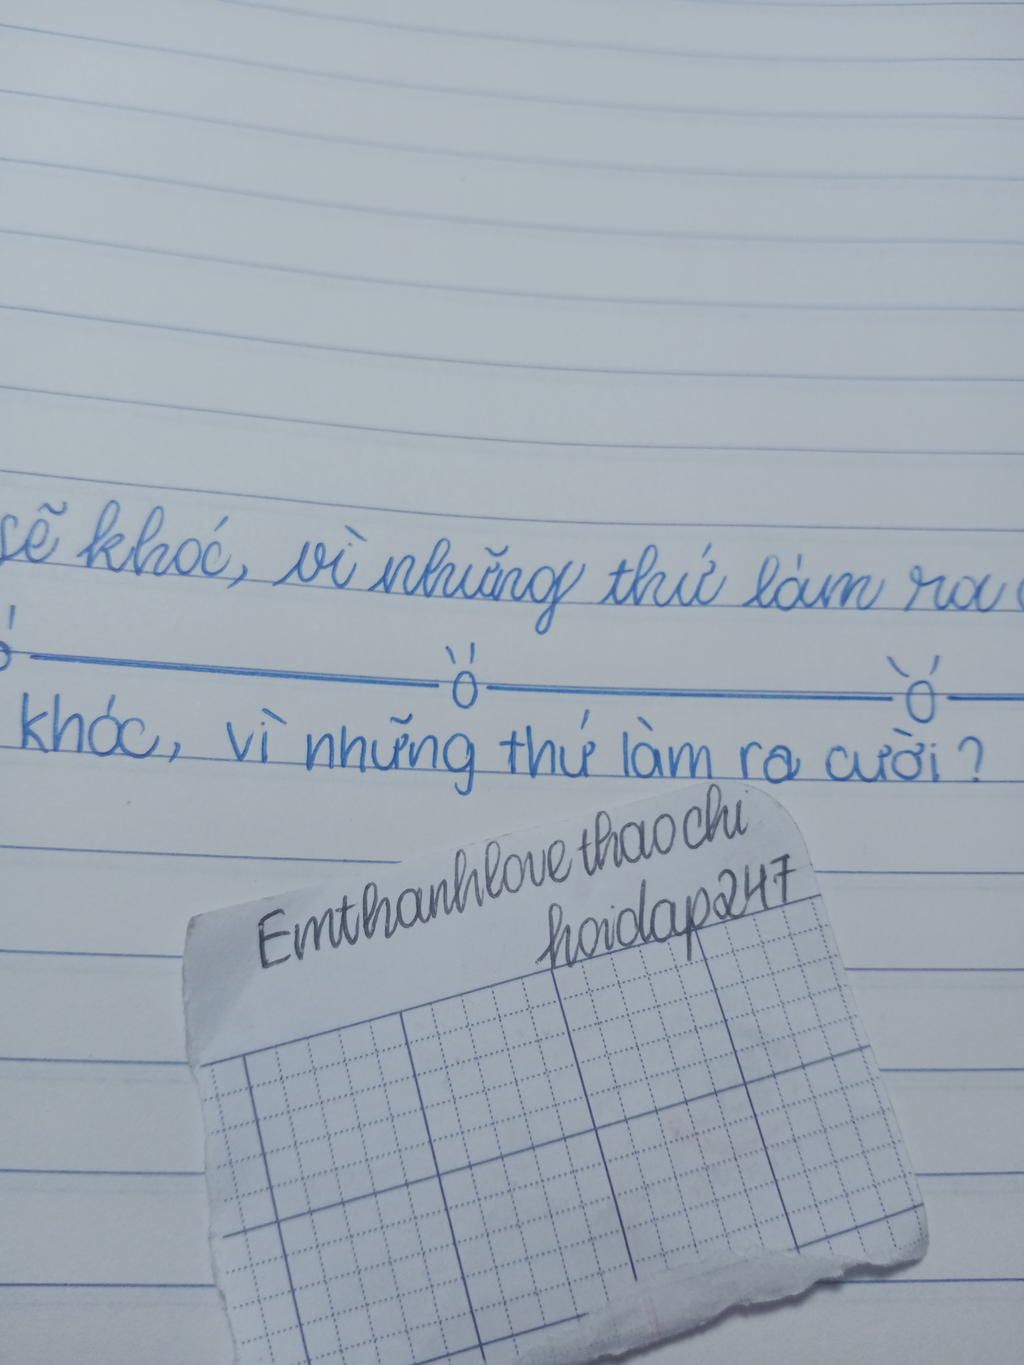 sẽ khóc, vì những thứ làm ra
khóc, vì những thứ làm ra cười?
Emthanhlovethaochi
hoidap247